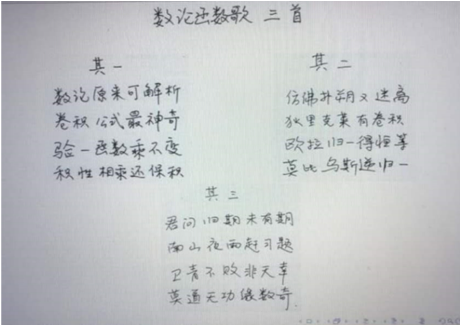 数论函数歌 三首
其一
数论原来可解析
卷积公式最神奇
验一函数乘不变
积性相乘还保积
其二
仿佛扑朔又迷离
狄里克莱有卷积
欧拉归一得恒等
莫比乌斯逆归一
其三
君问归期未有期
南山夜雨赶习题
卫青不败非天幸
莫道无功缘数奇